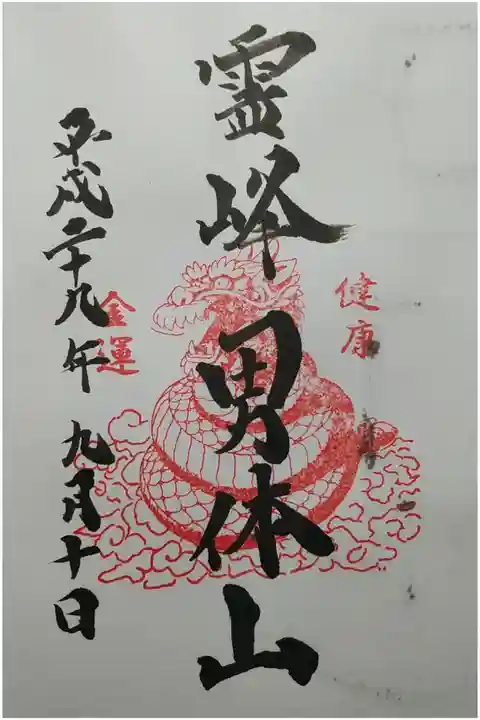 健康
霊峰男体山
金運
平成二十九年 九月十日